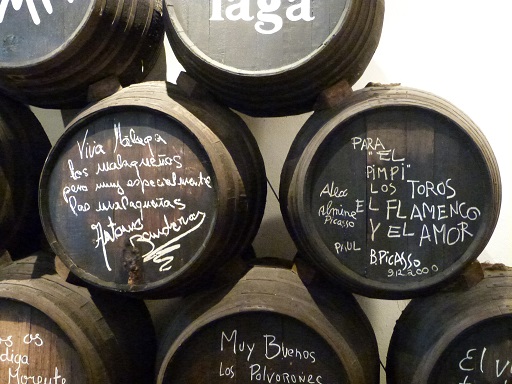 laga
Viva Málaga
los malagueños
pero muy especialmente
las malagueñas
Antonio Banderas
PARA
"EL
PIMPI"
LOS TOROS
EL FLAMENCO
Y EL AMOR
Alex
Almine
Picasso
PAUL
BPICASSO
9.12.2000
os os
diga
Morente
MUY BUENOS
LOS POLVORONES
El V